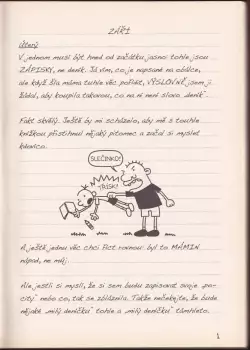 ZÁŘÍ
Úterý
V jednom musí být hned od začátku jasno: tohle jsou
ZÁPISKY, ne deník. Já vím, co je napsané na obálce,
ale když šla máma tuhle věc pořídit, VÝSLOVNĚ jsem jí
žádal, aby koupila takovou, co na ní není slovo „deník“.
Fakt skvělý. Ještě by mi scházelo, aby mě s touhle
knížkou přistihnul nějaký pitomec a začal si myslet
kdovíco.
SLEČINKO!
TŘÍSK!
A ještě jednu věc chci říct rovnou: byl to MÁMIN
nápad, ne můj.
Ale jestli si myslí, že si sem budu zapisovat svoje „po-
city“ nebo co, tak se zbláznila. Takže nečekejte, že bude
nějaké „milý deníčku“ tohle a „milý deníčku“ támhleto.
1